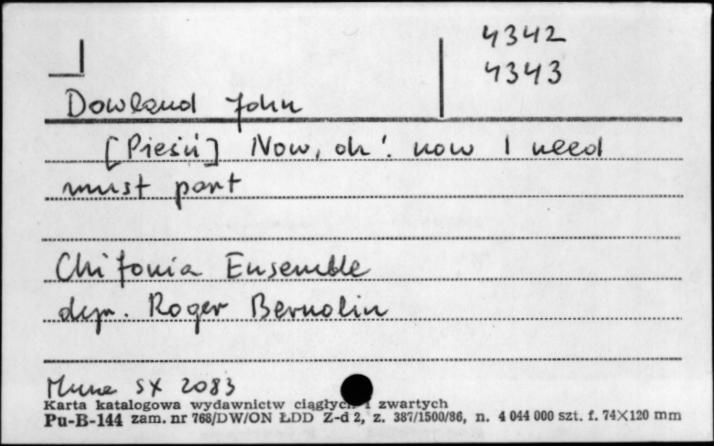 4342
4343
Dowland John
[Pieśń] Now, oh! now I need
must part
Chifonia Ensemble
dyr. Roger Bernolin
Muza SX 2083
Karta katalogowa wydawnictw ciągłych i zwartych
Pu-B-144 zam. nr 768/DW/ON ŁDD Z-d 2, z. 387/1500/86, n. 4 044 000 szt. f. 74X120 mm